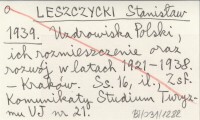 LESZCZYCKI Stanisław
1939. Uzdrowiska Polski,
ich rozmieszczenie oraz
rozwój w latach 1921-1938.
– Kraków. Ss. 16, il. Zsf.
Komunikaty Studium Turyz-
mu UJ nr 21.